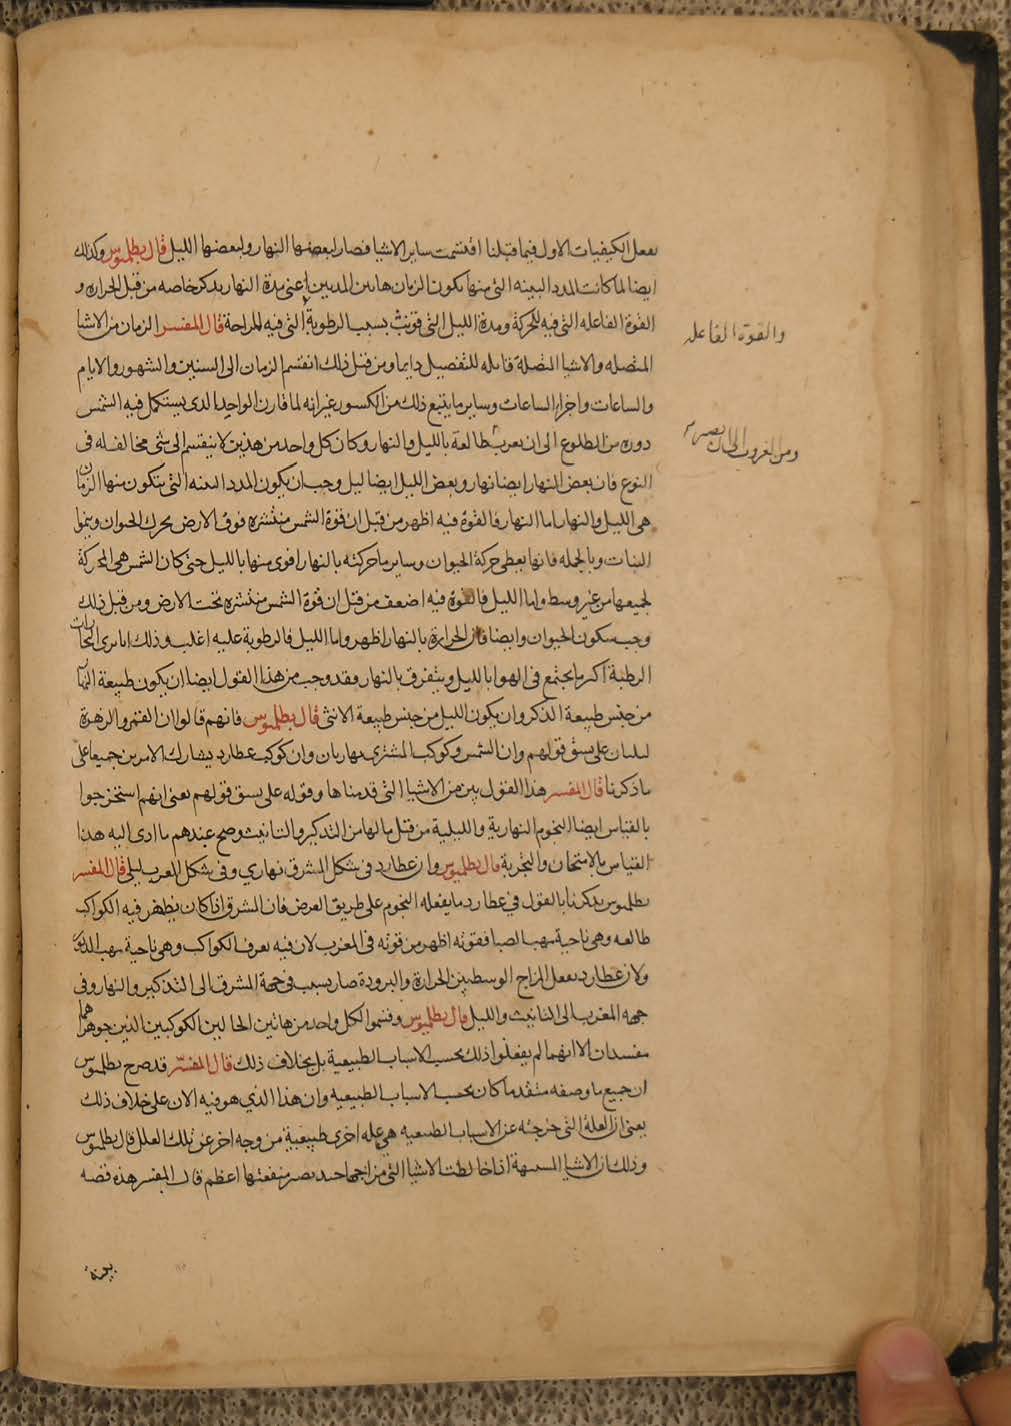 بفعل الكيفيات الاول فيما قبلنا اقتسمت ساير الاشيا فصار لبعضها النهار ولبعضها الليل قال بطلميوس وكذلك
ايضا لما كانت المدد البينه التى منها يكون الزمان هاتين المدتين اعنى مدة النهار يذكر خاصه من قبل الحراره و
القوة الفاعله التى فيه للحركة ومدة الليل التى قويت بسبب الرطوبة التى فيه للراحة قال المفسر الزمان من الاشيا
المتصله والاشيا المتصلة قابله للتفصيل دايما ومن قبل ذلك انقسم الزمان الى السنين والشهور والايام
والساعات واجزاء الساعات وساير ما يتبع ذلك من الكسور غير انه لما قارن الواحد الذى يستكمل فيه الشمس
دوره من الطلوع الى ان تغرب طالعة بالليل والنهار وكان كل واحد من هذين لا ينقسم الى شى مخالف له فى
النوع فان بعض النهار ايضا نهار وبعض الليل ايضا ليل وجب ان يكون المدد البينه التى يتكون منها الزمان
هى الليل والنهار اما النهار فالقوة فيه اظهر من قبل ان قوة الشمس منتشره فوق الارض يحرك الحيوان وينموا
النبات وبالجمله فانها يعطى حركة الحيوان وساير ما حركته بالنهار اقوى منها بالليل حتى كان الشمس هى المحركة
لجميعها من غير وسط واما الليل فالقوة فيه اضعف من قبل ان قوة الشمس منتشره تحت الارض ومن قبل ذلك
وجب سكون الحيوان وايضا فان الحرارة بالنهار اظهر واما الليل فالرطوبة عليه اغلب وذلك انا نرى البخارات
الرطبة اكثر ما يجتمع فى الهوا بالليل ويتفرق بالنهار فقد وجب من هذا القول ايضا ان يكون طبيعة النهار
من جنس طبيعة الذكر وان يكون الليل من جنس طبيعة الانثى قال بطلميوس فانهم قالوا ان القمر والزهرة
ليليان على نسق قولهم وان الشمس وكوكب المشترى نهاريان وان كوكب عطارد يشارك الامرين جميعا على
ما ذكرنا قال المفسر هذا القول بين من الاشيا التى قدمناها وقوله على نسق قولهم يعنى انهم استخرجوا
بالقياس ايضا النجوم النهارية والليلية من قبل ما لها من التذكير والتانيث وصح عندهم ما ادى اليه هذا
القياس بالامتحان والتجربة قال بطلميوس وان عطارد فى شكل المشرق نهاري وفى شكل المغرب ليلى قال المفسر
بطلميوس يذكرنا بالقول فى عطارد ما يفعله النجوم على طريق العرض فان المشرق اذا كان يظهر فيه الكواكب
طالعه وهى ناحية مهب الصبا فقوته اظهر من قوته فى المغرب لان فيه تعرف الكواكب وهى ناحية مهب الدبور
ولان عطارد يفعل المزاج الوسط بين الحرارة والبرودة صار بسبب فى جهة المشرق الى التذكير والنهار وفى
جهه المغرب الى التانيث والليل قال بطلميوس وقسموا لكل واحد من هاتين الحالين الكوكبين الذين جوهراهما
مفسدان الا انهما لم يفعلوا ذلك بحسب الاسباب الطبيعية بل بخلاف ذلك قال المفسر قد صرح بطلميوس
ان جميع ما وصفه متقدما كان بحسب الاسباب الطبيعيه وان هذا الذي هو فيه الان على خلاف ذلك
يعنى ان العلة التى خرجت عن الاسباب الطبيعيه هى عله اخرى طبيعية من وجه اخر غير تلك العلل قال بطلميوس
وذلك ان الاشيا الشبيهة اذا خالطت الاشيا التى مزاجها جيد تصير منفعتها اعظم قال المفسر هذه قصه
والقوة الفاعله
ومن الغروب الى ان يصير